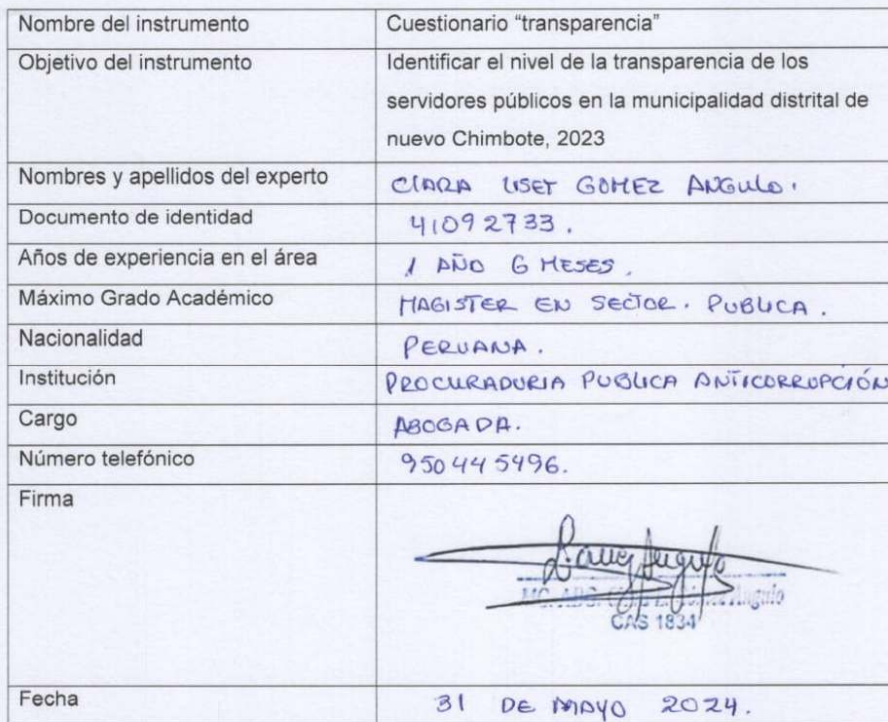 Nombre del instrumento Cuestionario “transparencia”
Objetivo del instrumento Identificar el nivel de la transparencia de los
servidores públicos en la municipalidad distrital de
nuevo Chimbote, 2023
Nombres y apellidos del experto CLARA LISET GOMEZ ANGULO.
Documento de identidad 41092733.
Años de experiencia en el área 1 AÑO 6 MESES.
Máximo Grado Académico MAGISTER EN SECTOR. PUBLICA.
Nacionalidad PERUANA.
Institución PROCURADURIA PUBLICA ANTICORRUPCIÓN
Cargo ABOGADA.
Número telefónico 950445496.
Firma
Angulo
CAS 1834
Fecha 31 DE MAYO 2024.